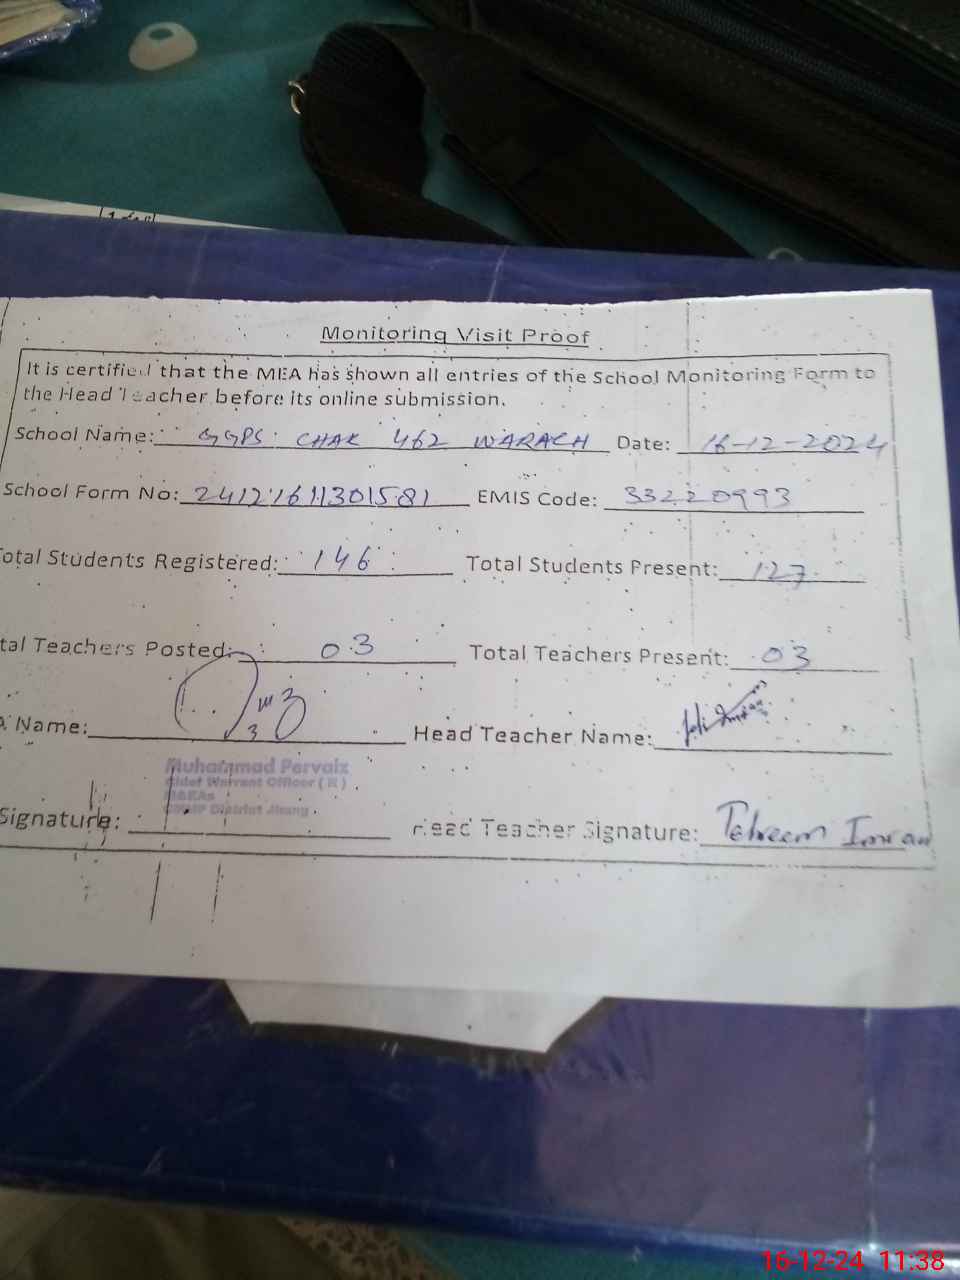 Monitoring Visit Proof
It is certified that the MEA has shown all entries of the School Monitoring Form to
the Head Teacher before its online submission.
School Name: GGPS CHAK 462 WARACH Date: 16-12-2024
School Form No: 24121611301581 EMIS Code: 33220993
otal Students Registered: 146 Total Students Present: 127
tal Teachers Posted: 03 Total Teachers Present: 03
Name: Head Teacher Name:
Muhammad Pervaiz
Chief Warrant Officer (R)
District Jhang
Signature: Head Teacher Signature: Tehreem Imran
16-12-24 11:38